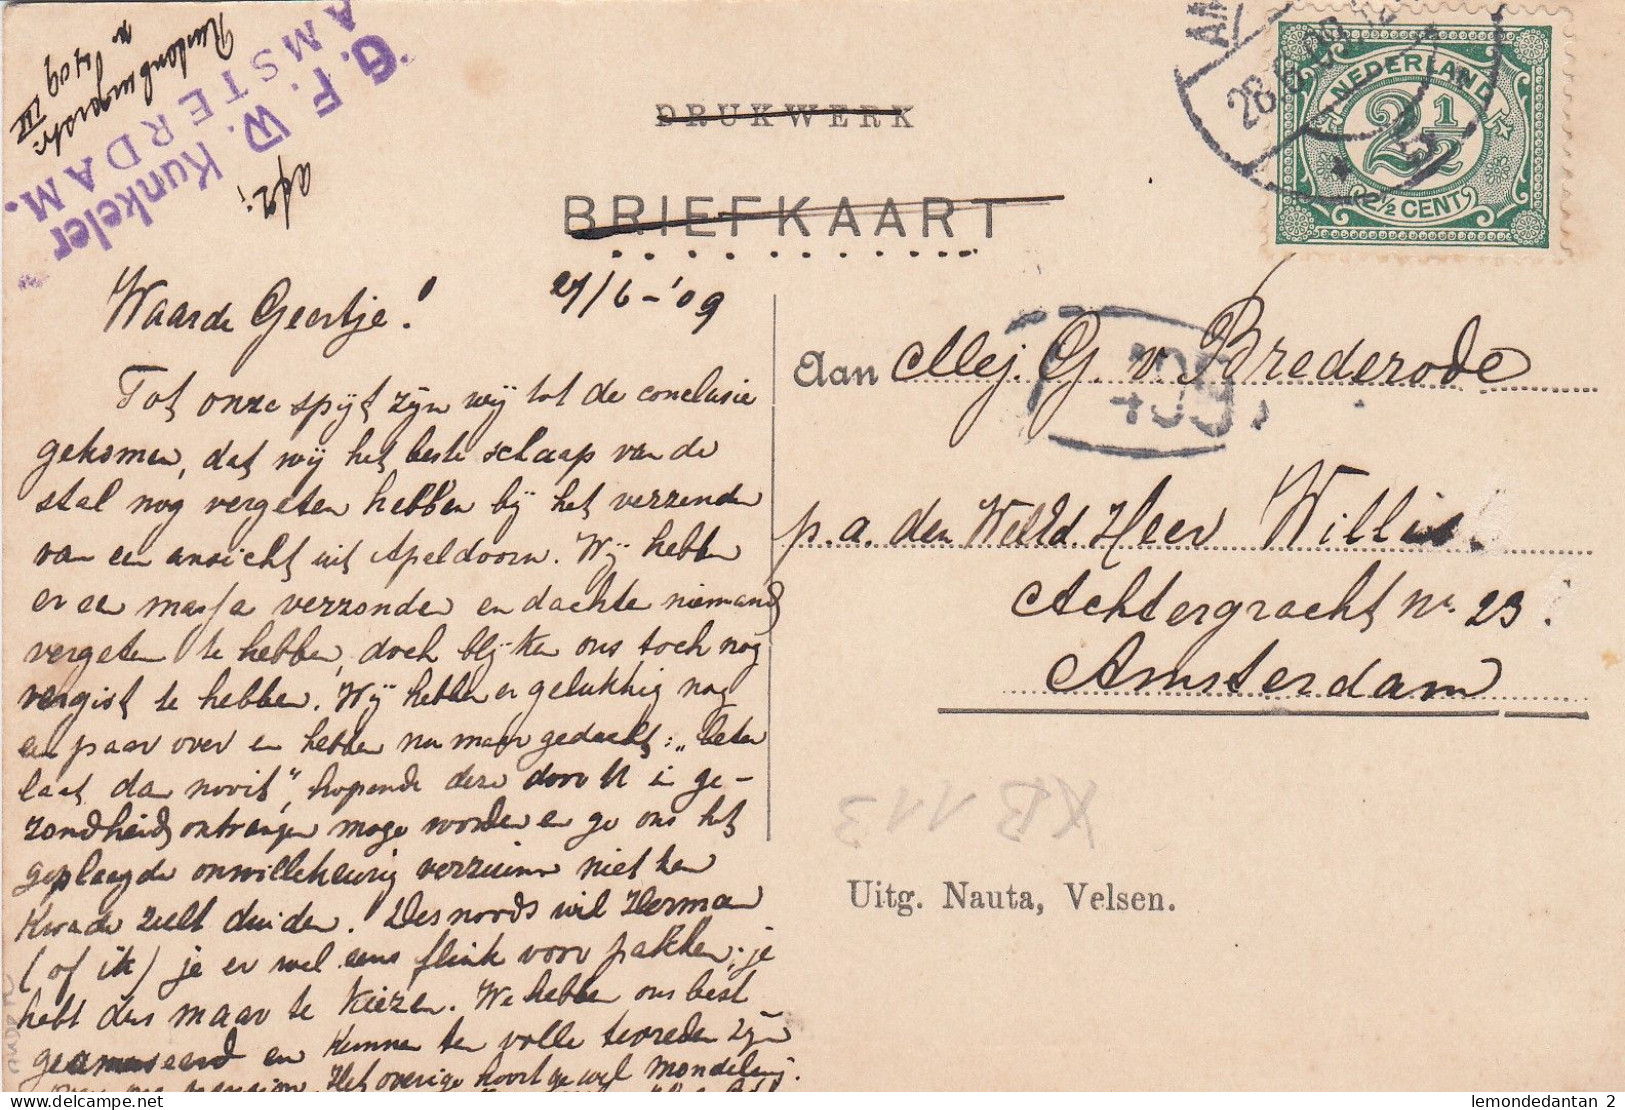 G. F. W. Kunkeler
AMSTERDAM.
afz:
DRUKWERK
BRIEFKAART
NEDERLAND
2½
2½ CENT
28.6.09
27/6-'09
Waarde Geertje!
Tot onze spijt zijn wij tot de conclusie
gekomen, dat wij het beste schaap van de
stal nog vergeten hebben bij het verzenden
van een ansicht uit Apeldoorn. Wij hebben
er en massa verzonden en dachten niemand
vergeten te hebben, doch blijken ons toch nog
vergist te hebben. Wij hebben er gelukkig nog
een paar over en hebben nu maar gedacht: „beter
laat dan nooit", hopende deze door U in ge-
zondheid ontvangen moge worden en ge ons het
gepleegde onwillekeurig verzuim niet ten
kwade zult duiden. Desnoods wil Herman
(of ik) je er wel eens flink voor pakken; je
hebt dus maar te kiezen. We hebben ons best
geamuseerd en kunnen ten volle tevreden zijn
over pension. Het overige hoort ge wel mondeling.
Aan Mej. G. v. Brederode
p.a. den WelEd. Heer Willis.
Achtergracht nr. 23.
Amsterdam
KB 113
Uitg. Nauta, Velsen.
lemondedantan 2